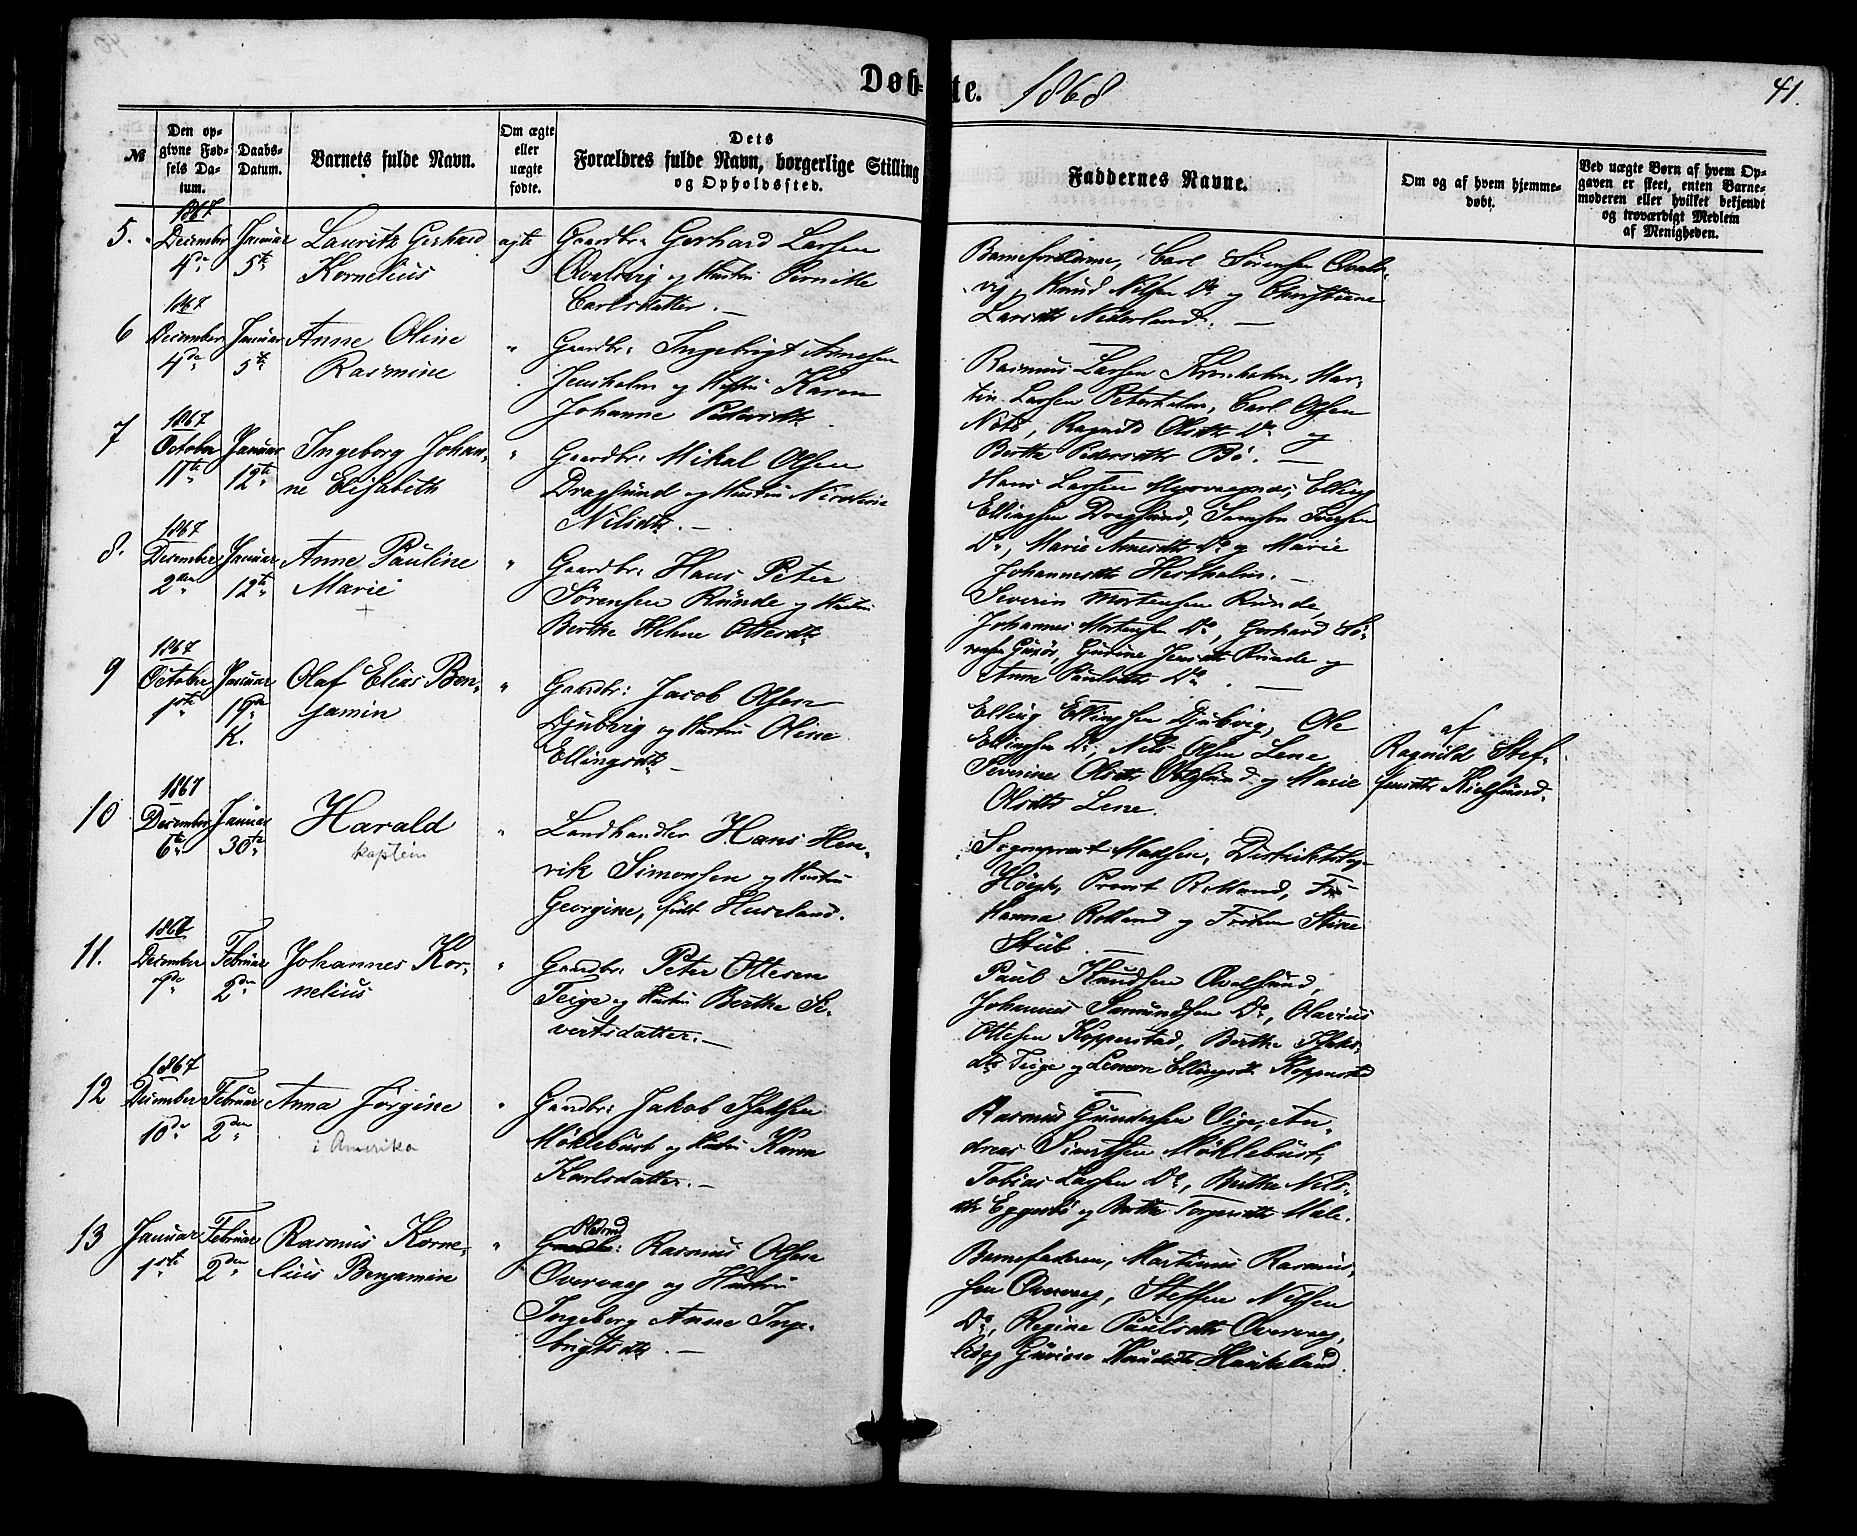 Døb-te. 1868
41.
№
Den opgivne Fødsels Datum.
Daabs-Datum.
Barnets fulde Navn.
Om ægte eller uægte fødte.
Dets Forældres fulde Navn, borgerlige Stilling og Opholdssted.
Faddernes Navne.
Om og af hvem hjemmedøbt.
Ved uægte Børn af hvem Opgaven er skeet, enten Barnemoderen eller hvilket bekjendt og troværdigt Medlem af Menigheden.
5.
1867
December 4de
Januar 5te
Lauritz Gerhard
Kornelius
ægte
Gaardbr: Gerhard Larsen
Qvalsvig og Hustru Pernille
Carlsdatter.
Barnefaderen, Carl Sørensen Qvals-
vig, Knud Nilsen Do og Christiane
Larsdtr Nederland.
6
1867
December 4de
Januar 5te
Anne Oline
Rasmine
"
Gaardbr: Ingebrigt Arnesen
Jensholm og Hustru Karen
Johanne Pedersdtr.
Rasmus Larsen Jensholm, Mar-
tin Larsen Petersholm, Carl Olsen
Notø, Ragnild Olsdtr Do og
Berthe Pedersdtr Bø.
7
1867
October 11te
Januar 12te
Ingeborg Johan-
ne Elisabeth
"
Gaardbr: Mikal Olsen
Dragsund og Hustru Nicoline
Nilsdtr.
Hans Larsen Myrvaagnes, Elling
Ellingsen Dragsund, Samson Iversen
Do, Marie Arnesdtr Do og Marie
Johannesdtr Hestholm.
8.
1867
December 2den
Januar 12te
Anne Pauline
Marie
+
"
Gaardbr: Hans Peter
Sørensen Runde og Hustru
Berthe Helene Ottesdtr
Severin Mortensen Runde,
Johannes Mortensen Do, Gerhard Sø-
rensen Gurskø, Gurine Jensdtr Runde og
Anne Paulsdtr Do.
9
1867
October 1ste
Januar 19de
K.
Olaf Elias Ben-
jamin
"
Gaardbr: Jacob Olsen
Djubvig og Hustru Oline
Ellingsdtr
Elling Ellingsen Djubvig, Ole
Ellingsen Do, Nils Olsen Lene
Severine Olsdtr og Marie
Olsdtr Lene.
af
Ragnild Stef-
fensdtr Kielsund.
10
1867
December 6te
Januar 30te
Harald
kaptein
"
Landhandler Hans Hen-
rik Simonsen og Hustru
Georgine, født Huseland.
Sogneprest Madsen, Distriktslæge
Høegh, Provst Rolland, Fru
Hanna Rolland og Frøken Stine
Stub
11.
December
Februar 2den
Johannes Kor-
nelius
"
Gaardbr: Peter Ottesen
Teige og Hustru Berthe Si-
vertsdatter.
Paul Knudsen Qvalsund,
Johannes Samundsen Do, Olavius
Ottesen Kopperstad, Berthe Isaks-
dtr Teige og Lenore Ellingsdtr Kopperstad
12
1867
December 10de
Februar 2den
Anna Jørgine
i Amerika
"
Gaardbr: Jakob Isaksen
Møklebust og Hustru Karen
Karlsdatter.
Rasmus Gundersen Vige, An-
dreas Sivertsen Møklebust,
Tobias Larsen Do, Berthe Nils-
dtr Eggesbø og Berthe Torgersdtr Male.
13
Januar 1ste
Februar 2den
Rasmus Korne-
lius Benjamin
"
Gaardbr: Rasmus Olsen
Overvaag og Hustru
Ingeborg Anne Inge-
brigtsdtr.
Barnefaderen, Martinus Rasmus-
sen Overvaag, Steffen Nilsen
Do, Regine Paulsdtr Overvaag,
Gurine Knudsdtr Haukeland.